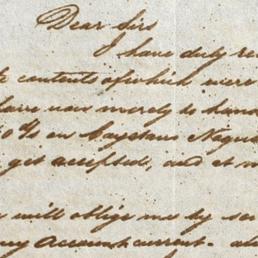 Dear Sirs
I have duly re
contents of which were
have now merely to hand
0%  on Captain
get accepted, and at m
will oblige me by se
my Account current. al